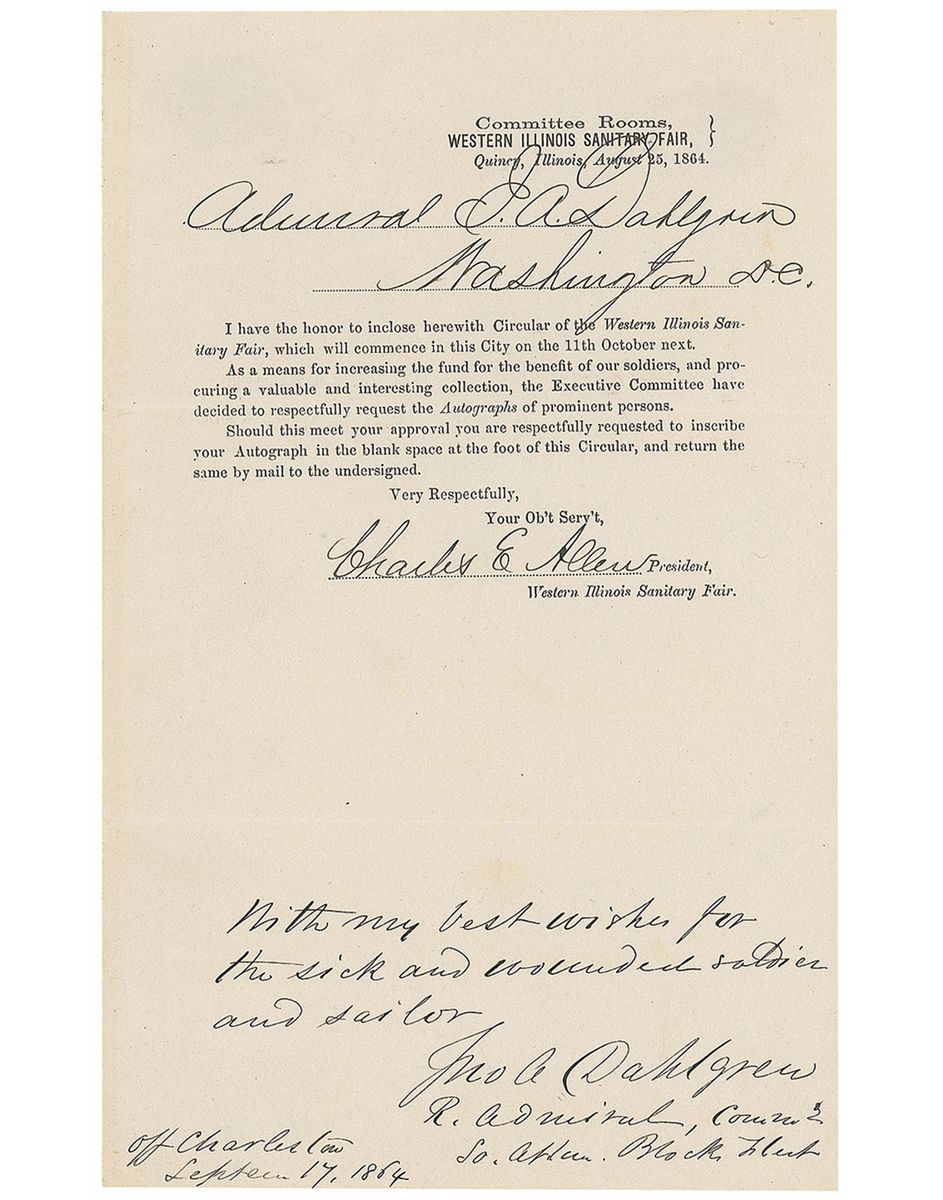 Committee Rooms,
WESTERN ILLINOIS SANITARY FAIR, }
Quincy, Illinois, August 25, 1864.
Admiral J. A. Dahlgren
Washington D.C.
I have the honor to inclose herewith Circular of the Western Illinois San-
itary Fair, which will commence in this City on the 11th October next.
As a means for increasing the fund for the benefit of our soldiers, and pro-
curing a valuable and interesting collection, the Executive Committee have
decided to respectfully request the Autographs of prominent persons.
Should this meet your approval you are respectfully requested to inscribe
your Autograph in the blank space at the foot of this Circular, and return the
same by mail to the undersigned.
Very Respectfully,
Your Ob't Serv't,
Charles E Allen President,
Western Illinois Sanitary Fair.
With my best wishes for
the sick and wounded soldier
and sailor
Jno A Dahlgren
R. Admiral, Comm'g
So. Atlan. Blockg Fleet
off Charleston
Septem 17, 1864